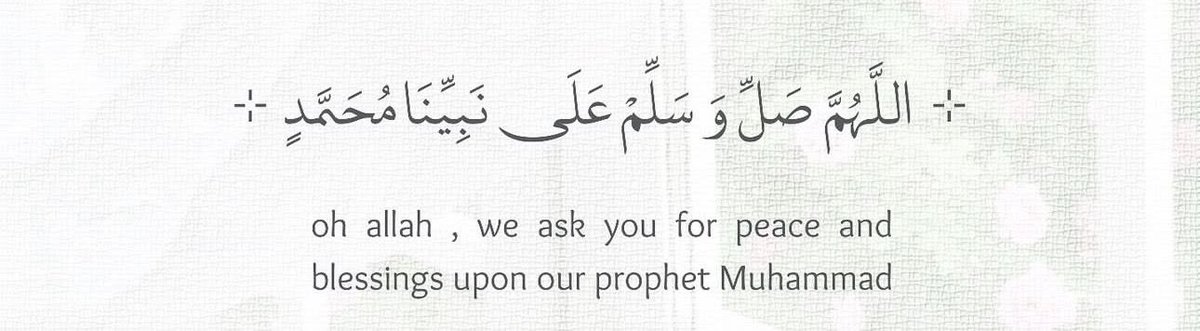 اللَّهُمَّ صَلِّ وَ سَلِّمْ عَلَى نَبِيِّنَا مُحَمَّدٍ
oh allah , we ask you for peace and
blessings upon our prophet Muhammad